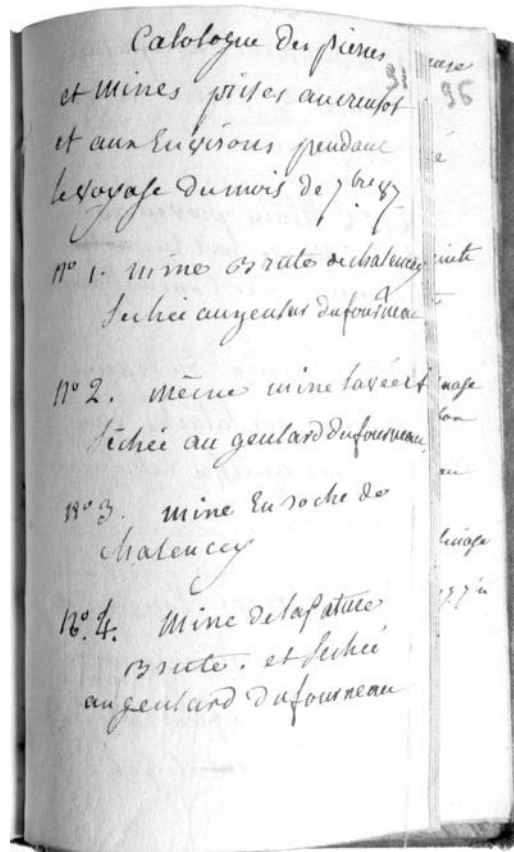 Catologue des pierres
91
et mines prises au creusot
et aux Environs pendant
le voyage du mois de 7bre 87
N° 1. mine Brute de chalencey
sechée au geulard du fourneau
N° 2. même mine lavée et
séchée au geulard du fourneau
N° 3. mine En roche de
chalencey
N° 4. Mine de la pature
Brute. et sechée
au geulard du fourneau
96